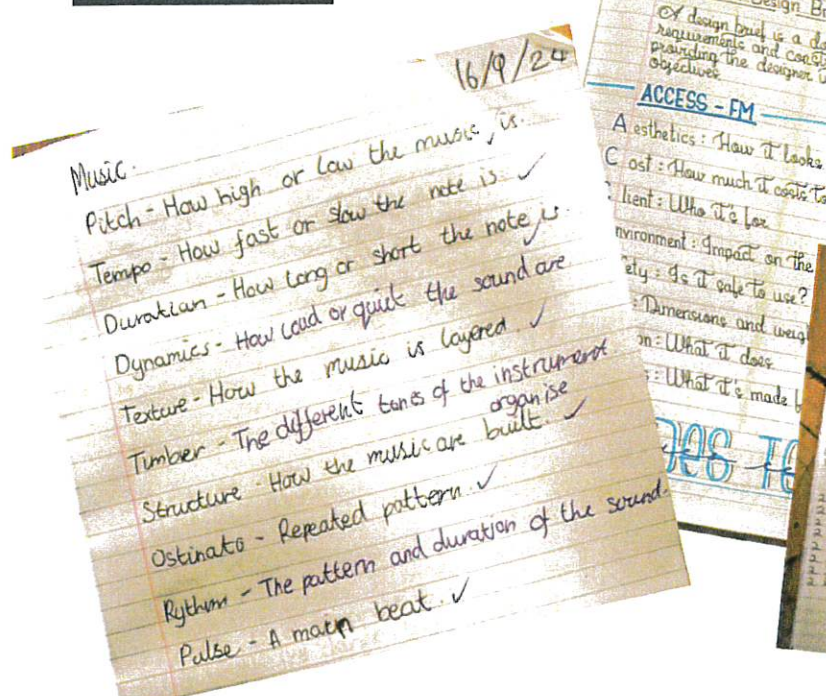 16/9/24
Music.
Pitch - How high or low the music is. ✓
Tempo - How fast or slow the note is ✓
Duration - How long or short the note is. ✓
Dynamics - How loud or quiet the sound are
Texture - How the music is layered. ✓
Timber - The different tones of the instrument
organise
Structure - How the music are built. ✓
Ostinato - Repeated pattern. ✓
Rythum - The pattern and duration of the sound.
Pulse - A main beat. ✓
Design Br
A design brief is a do
requirements and const
providing the designer
objectives
ACCESS - FM
Aesthetics: How it looks
Cost: How much it costs to
lient: Who it's for
nvironment: Impact on the
ety: Is it safe to use?
: Dimensions and weig
on: What it does
: What it's made